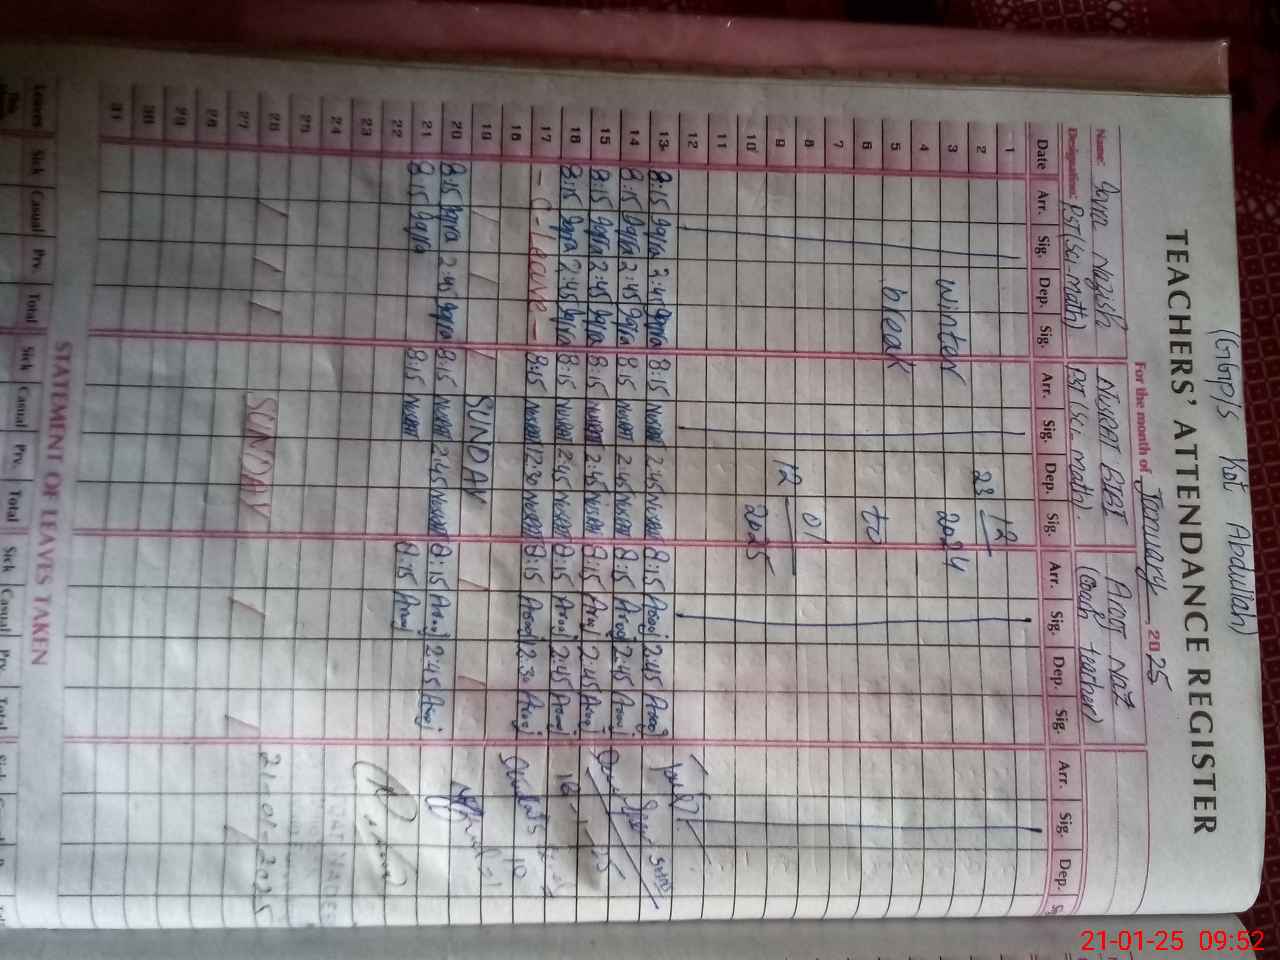 (GGP/S Kot Abdullah)
TEACHERS' ATTENDANCE REGISTER
For the month of January, 2025
Name: Iqra Nazish NUSRAT BIBI Arooj Naz
Designation: PST(Sci-math) PST(Sci-math). (Coach teacher)
Date Arr. Sig. Dep. Sig. Arr. Sig. Dep. Sig. Arr. Sig. Dep. Sig. Arr. Sig. Dep.
1 12
2 23
3 Winter 2024
4
5 break
6 to
7
8 01
9 12
10 2025
11
12
13 8:15 Iqra 2:45 Iqra 8:15 Nusrat 2:45 Nusrat 8:15 Arooj 2:45 Arooj
14 8:15 Iqra 2:45 Iqra 8:15 Nusrat 2:45 Nusrat 8:15 Arooj 2:45 Arooj
15 8:15 Iqra 2:45 Iqra 8:15 Nusrat 2:45 Nusrat 8:15 Arooj 2:45 Arooj
16 8:15 Iqra 2:45 Iqra 8:15 Nusrat 2:45 Nusrat 8:15 Arooj 2:45 Arooj
17 - C - Leave - 8:15 Nusrat 12:30 Nusrat 8:15 Arooj 12:30 Arooj
18
19 SUNDAY
20 8:15 Iqra 2:45 Iqra 8:15 Nusrat 2:45 Nusrat 8:15 Arooj 2:45 Arooj
21 8:15 Iqra 8:15 Nusrat 8:15 Arooj
22
23
24
25
26 21-01-2025
27 SUNDAY
28
29
30
31
STATEMENT OF LEAVES TAKEN
Leaves Sick Casual Prv. Total Sick Casual Prv. Total Sick Casual Prv. Total
This
21-01-25 09:52